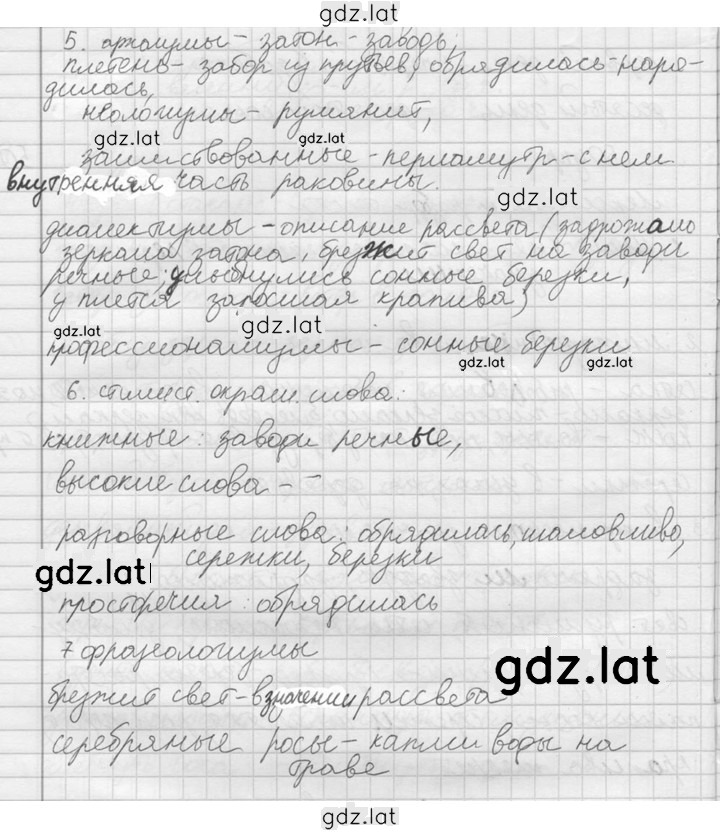 gdz.lat
5. архаизмы - затон - заводь,
плетень - забор из прутьев, обрядилась - наря-
дилась,
неологизмы - румянит,
gdz.lat gdz.lat
заимствованные - перламутр - с нем.
внутренняя часть раковины.
gdz.lat
диалектизмы - описание рассвета (задрожало
зеркало затона, брезжит свет на заводи
речные, улыбнулись сонные березки,
у плетня заросшая крапива)
gdz.lat gdz.lat
профессионализмы - сонные березки
gdz.lat gdz.lat
6. стилист. окраш. слова:
книжные: заводи речные,
высокие слова - -
разговорные слова: обрядилась, шаловливо,
сережки, березки
gdz.lat
просторечия: обрядилась
7 фразеологизмы
gdz.lat
брезжит свет - в значении рассвета
серебряные росы - капли воды на
траве
gdz.lat